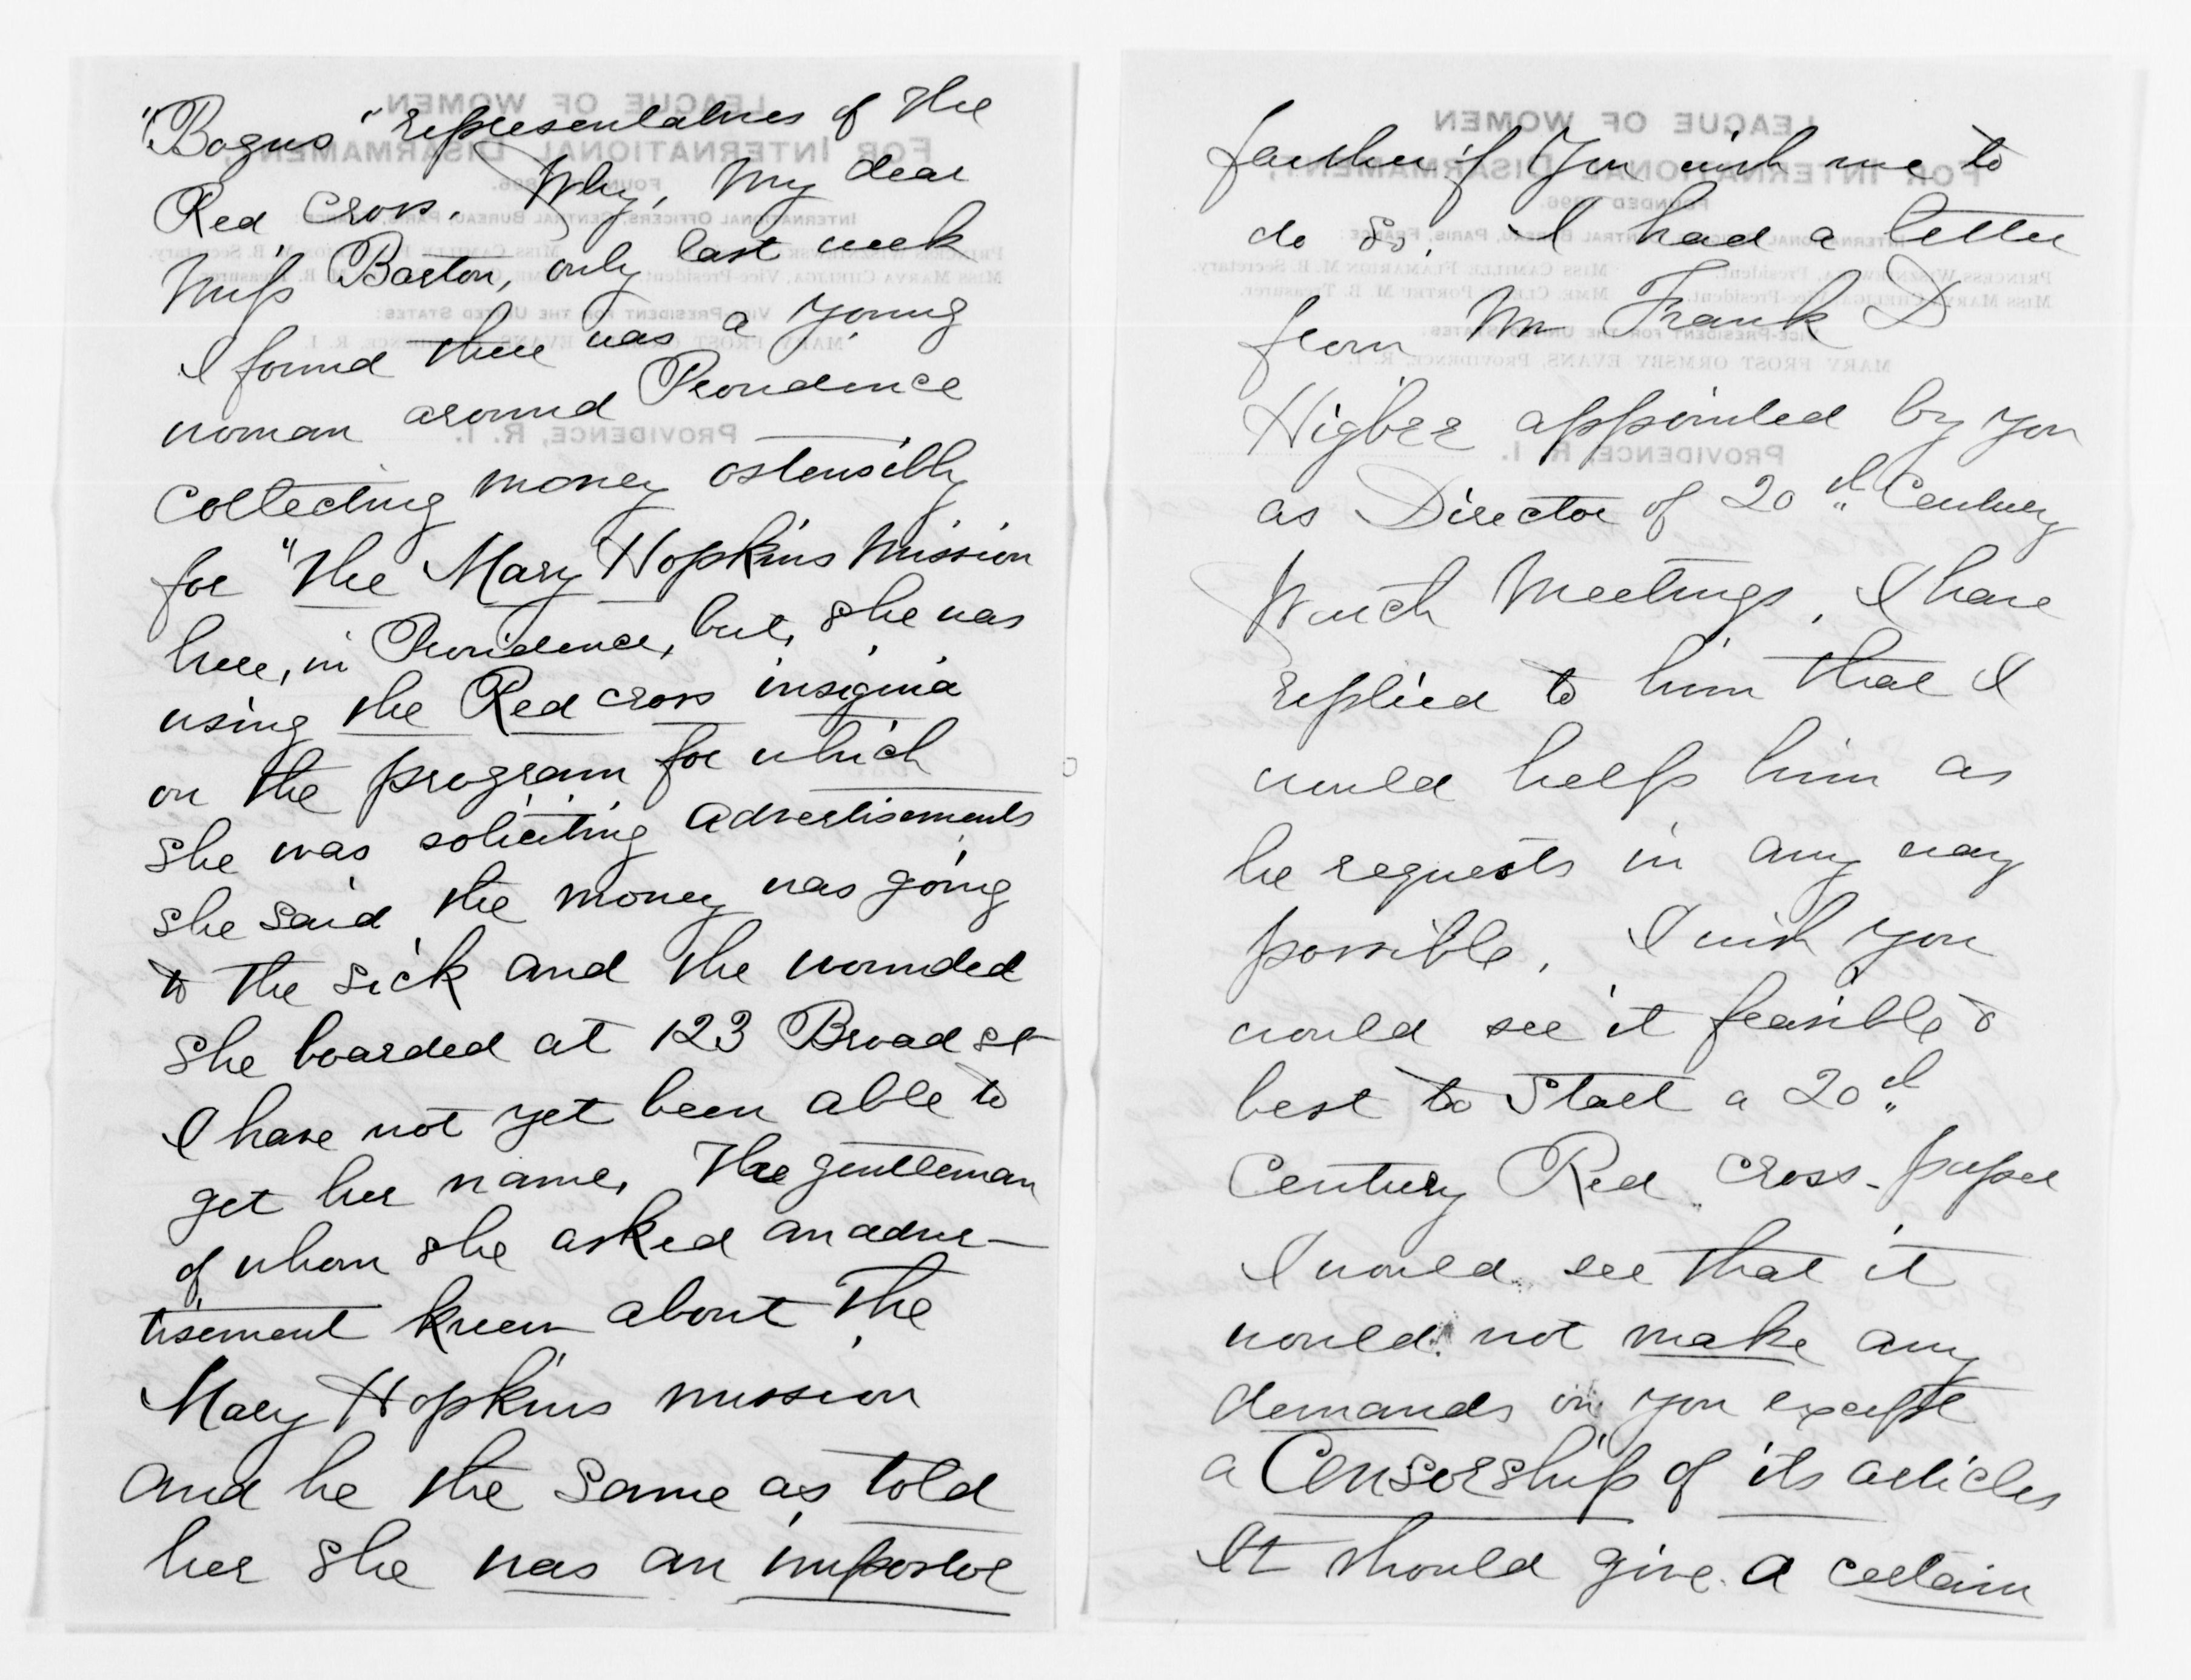 "Bogus" representatives of the
Red Cross. Why, my dear
Miss Barton, only last week
I found there was a young
woman around Providence
collecting money ostensibly
for "The Mary Hopkins Mission
here, in Providence, but, she was
using the Red Cross insignia
on the program for which
she was soliciting advertisements
she said the money was going
to the sick and the wounded
she boarded at 123 Broad st
I have not yet been able to
get her name. The gentleman
of whom she asked an adver-
tisement knew about the
Mary Hopkins mission
and he the same as told
her she was an impostor
further if you wish me to
do so. I had a letter
from Mr Frank D
Higbee appointed by you
as Director of 20th Century
Watch Meetings. I have
replied to him that I
would help him as
he requests in any way
possible. I wish you
would see it feasible &
best to start a 20th
Century Red Cross - paper
I would see that it
would not make any
demands on you except
a Censorship of its articles
It should give a certain
LEAGUE OF WOMEN
FOR INTERNATIONAL DISARMAMENT,
FOUNDED 1896.
VICE-PRESIDENT FOR THE UNITED STATES:
MARY FROST ORMSBY EVANS, PROVIDENCE, R. I.
PROVIDENCE, R. I.